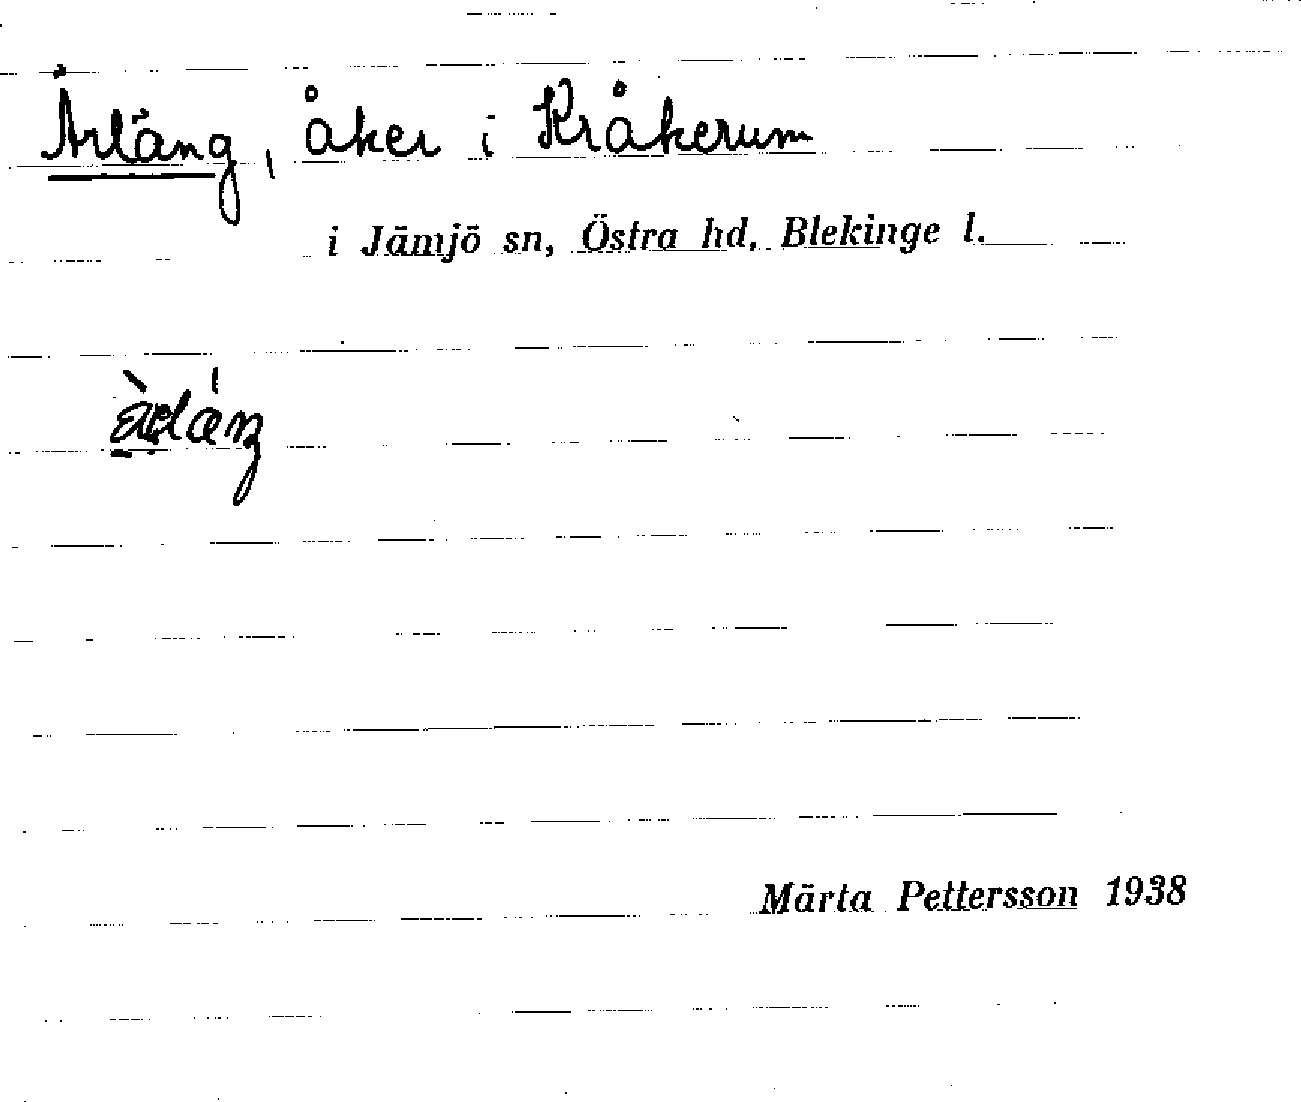 Årläng, åker i Kråkerum
i Jämjö sn, Östra hd, Blekinge l.
Märta Pettersson 1938